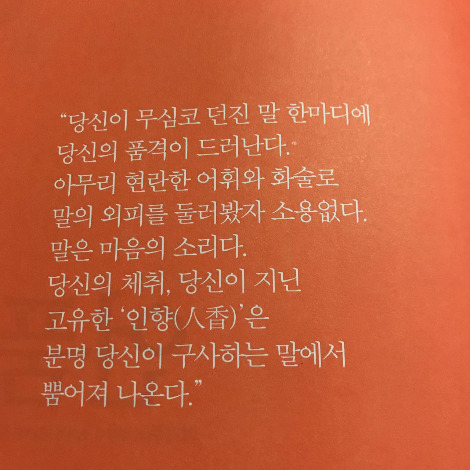 “당신이 무심코 던진 말 한마디에
당신의 품격이 드러난다.
아무리 현란한 어휘와 화술로
말의 외피를 둘러봤자 소용없다.
말은 마음의 소리다.
당신의 체취, 당신이 지닌
고유한 ‘인향(人香)’은
분명 당신이 구사하는 말에서
뿜어져 나온다.”